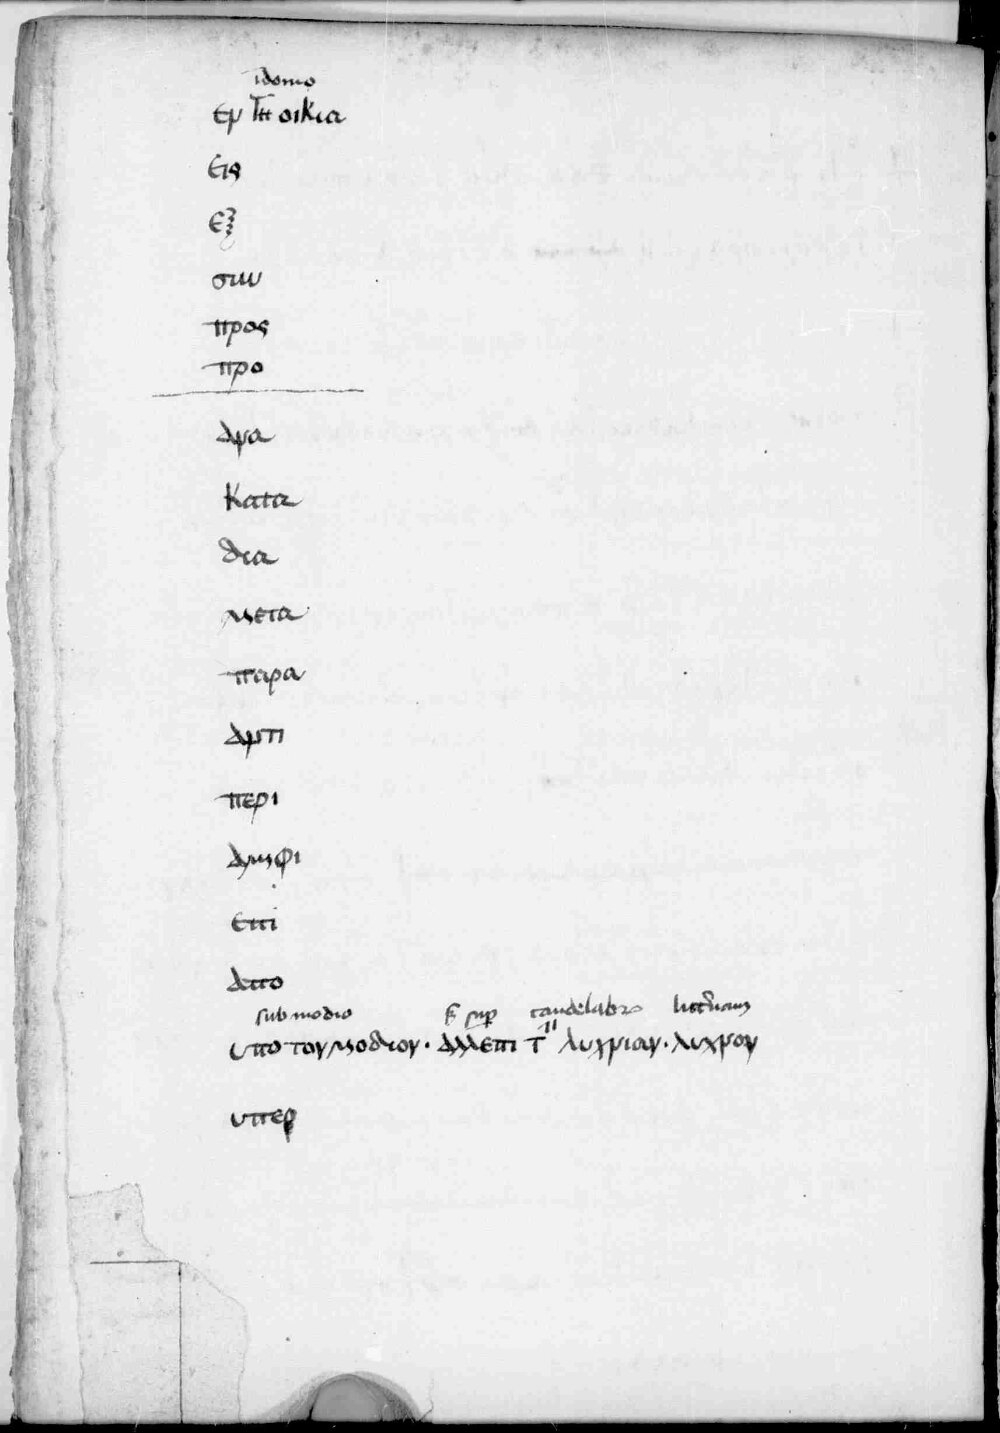 i domo
εν τη οικια
εις
εξ
συν
προς
προ
ανα
κατα
δια
μετα
παρα
αντι
περι
αμφι
επι
απο
sub modio s; sup candelabro
υπο του μοδιου · αλλ επι τ λυχνιαν · λυχνον
υπερ